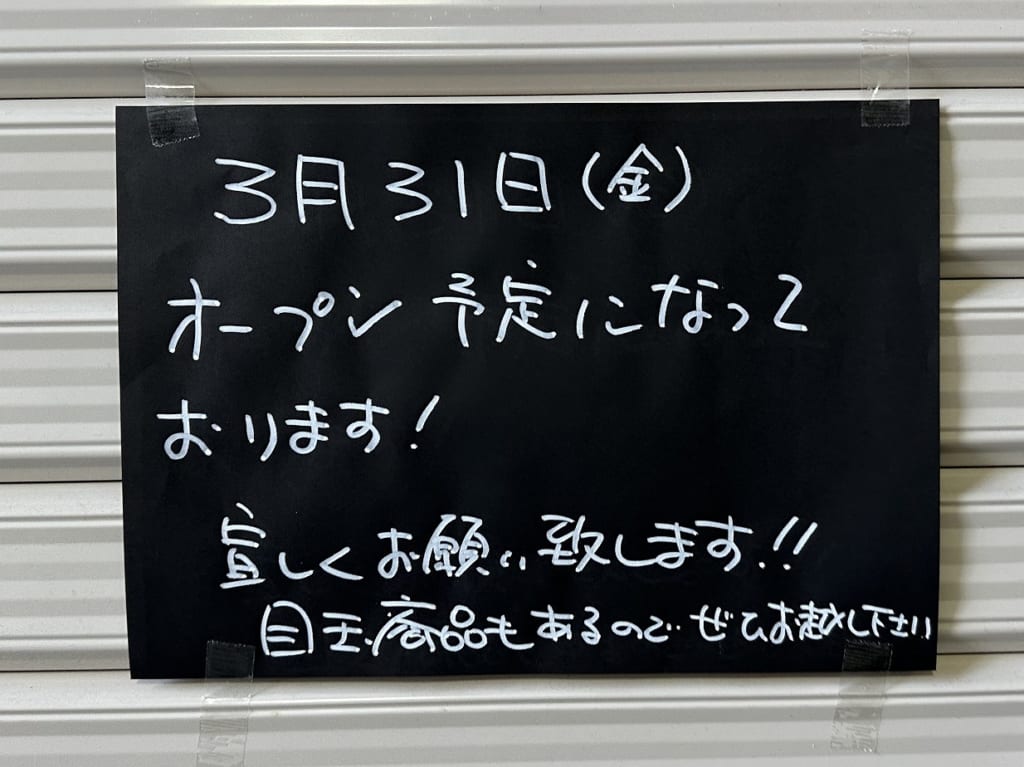 3月31日(金)
オープン予定になって
おります!
宜しくお願い致します!!
目玉商品もあるのでぜひお越し下さい